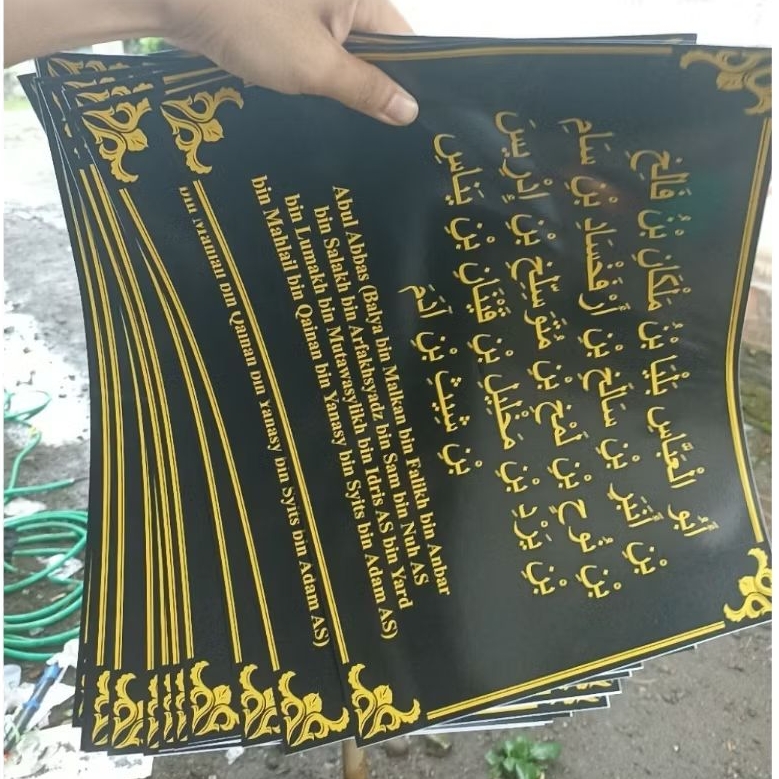 أَبُو الْعَبَّاسِ بَلْيَا بْنُ مَلْكَانِ بْنُ فَالِخِ
بْنِ أَنْبَرِ بْنِ سَالَخِ بْنِ أَرْفَخْسَادِ بْنِ سَامِ
بْنِ نُوحِ بْنِ لَمْخِ بْنِ مُتَوَسِّلِخِ بْنِ إِدْرِيسَ
بْنِ يَرْدِ بْنِ مَهْلِيلِ بْنِ قَيْنَانِ بْنِ يَنَاسِ
بْنِ شِيثِ بْنِ آدَمَ
Abul Abbas (Balya bin Malkan bin Falikh bin Anbar
bin Salakh bin Arfakhsyadz bin Sam bin Nuh AS
bin Lumakh bin Mutawasylikh bin Idris AS bin Yard
bin Mahlail bin Qainan bin Yanasy bin Syits bin Adam AS)
bin Mahlail bin Qainan bin Yanasy bin Syits bin Adam AS)